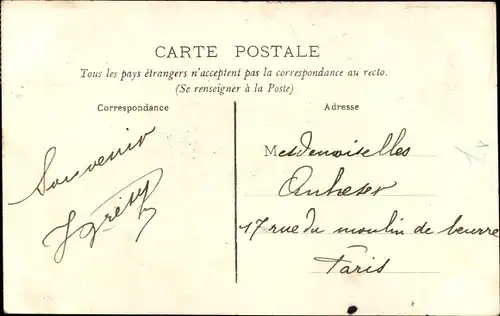 CARTE POSTALE
Tous les pays étrangers n'acceptent pas la correspondance au recto.
(Se renseigner à la Poste)
Correspondance
Adresse
Souvenir
Mesdemoiselles
17 rue du moulin de beurre
Paris